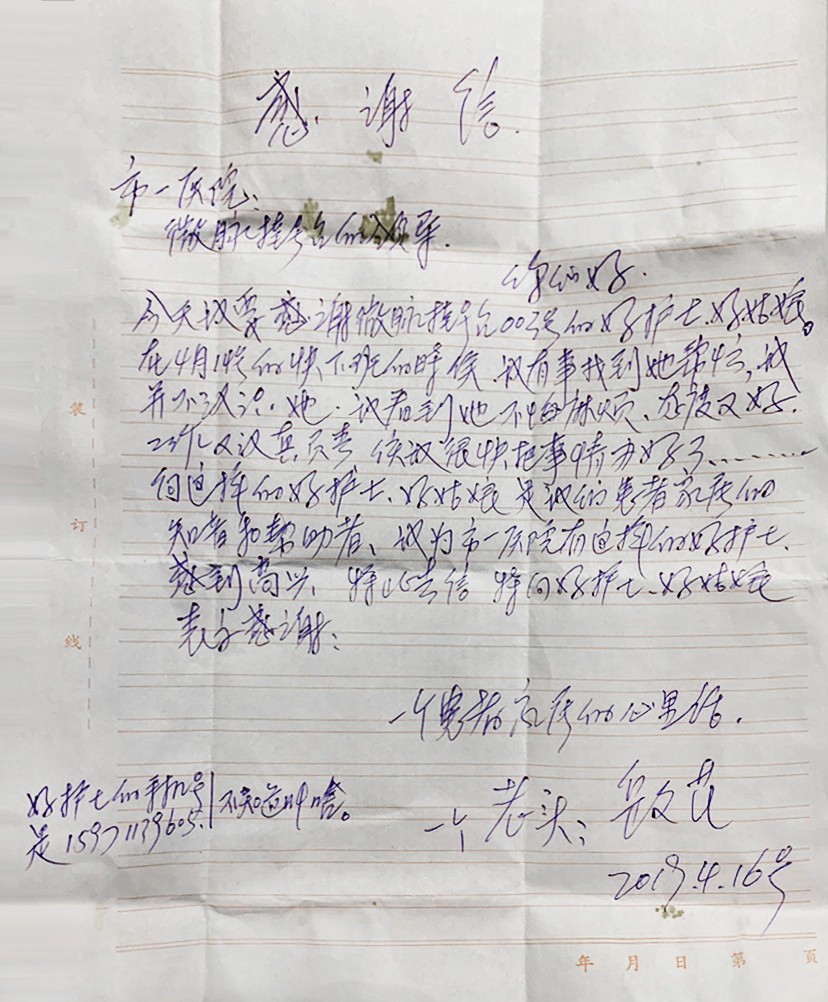 感谢信.
市一医院:
微脉挂号台的领导.
你们好.
今天我要感谢微脉挂号台003号的好护士、好姑娘。
在4月14号的快下班的时候、我有事找到她帮忙,我
并不认识她.我看到她不怕麻烦、态度又好.
工作又认真负责 很快把事情办好了........
向这样的好护士、好姑娘是我们患者家属的
知音和帮助者、我为市一医院有这样的好护士、
感到高兴、特此去信 特向好护士、好姑娘
表示感谢:
一个患者家属的心里话.
一个老头:
2019.4.16号
好护士的手机号
是15971139605.
不知道叫啥。
装
订
线
年 月 日 第 頁